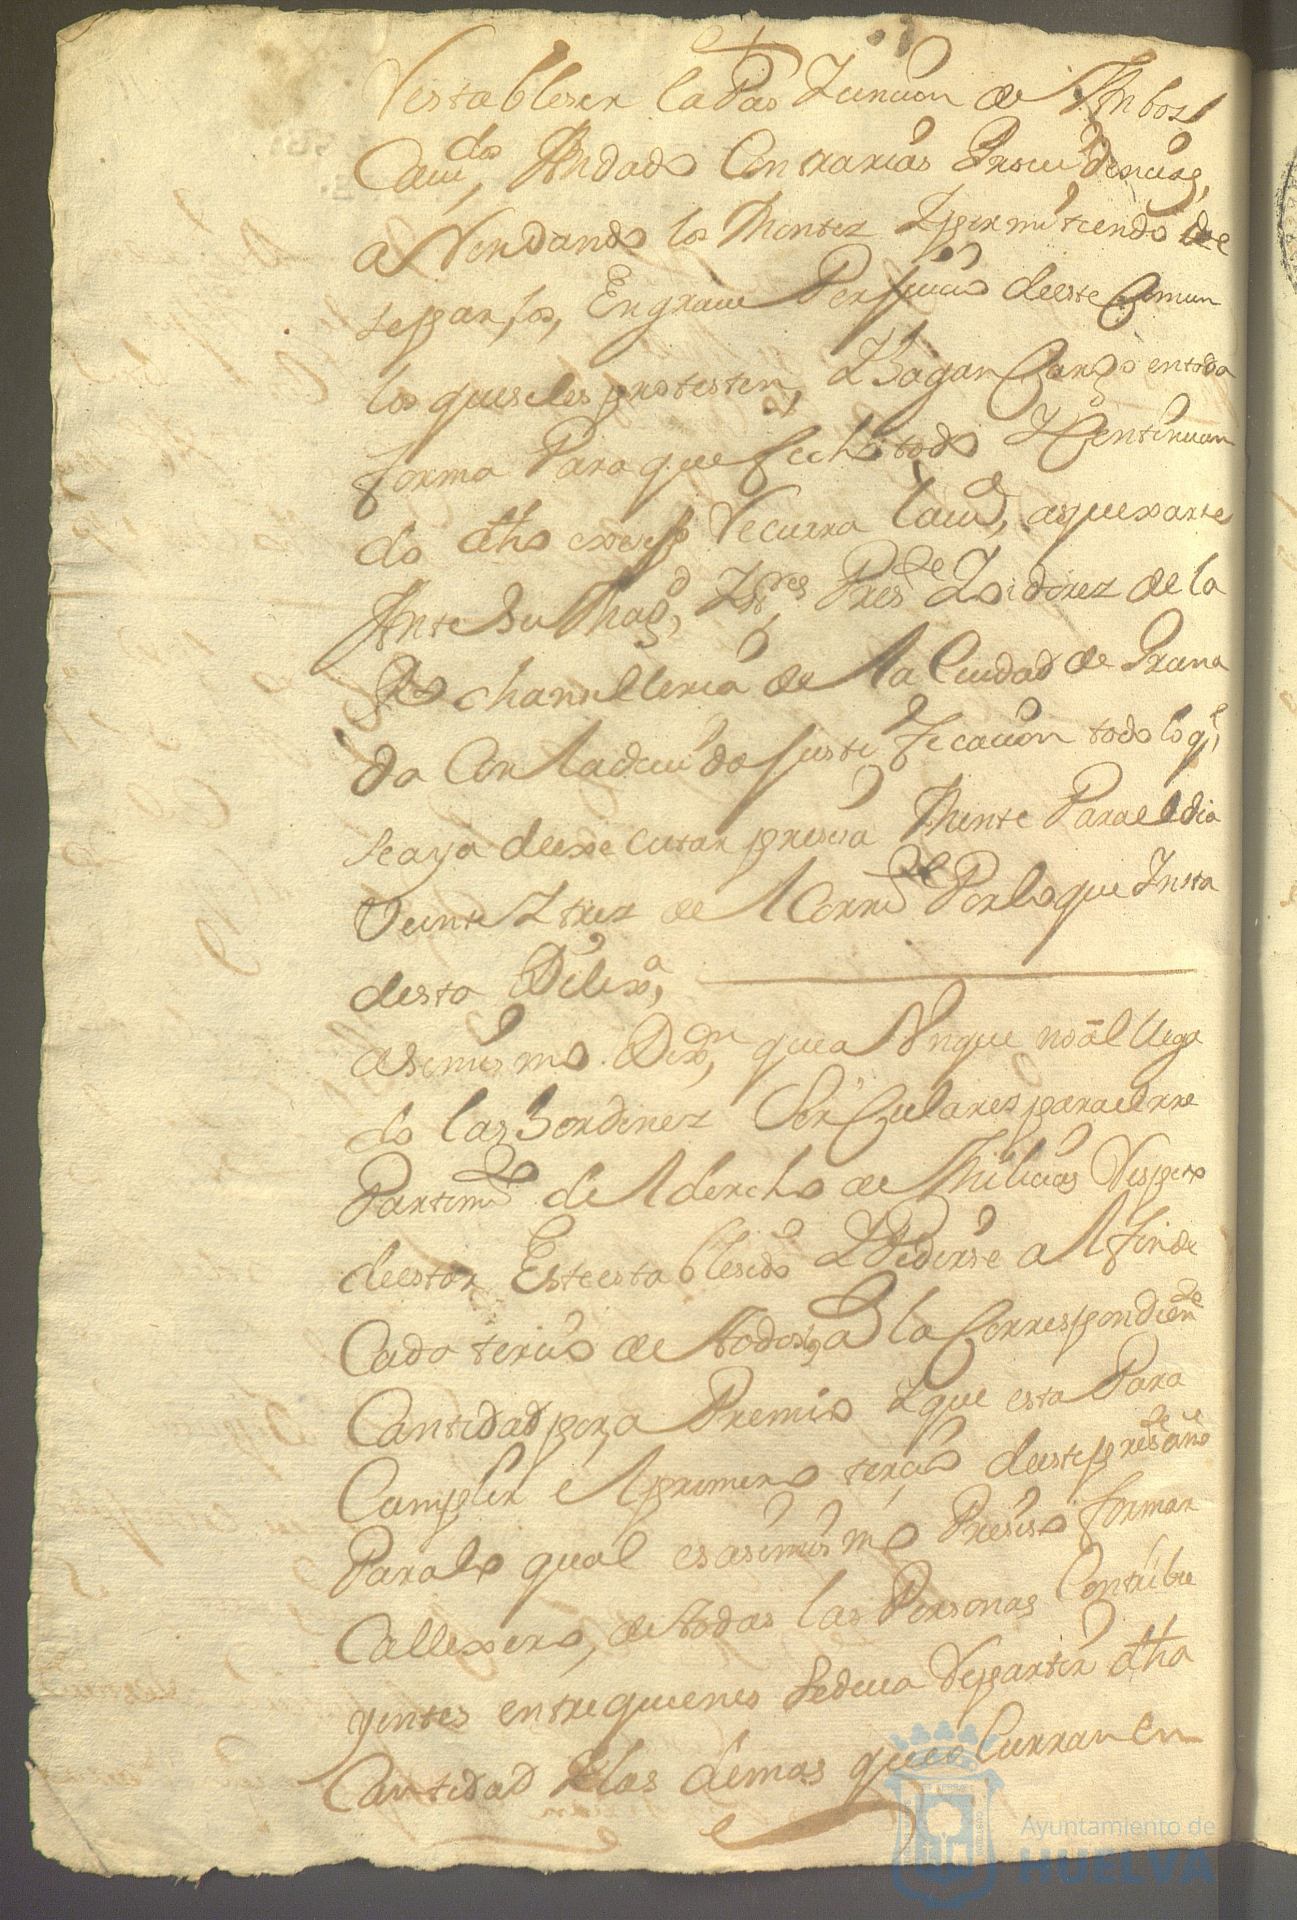 Restableser la Pas Y union de Ambos
Cauildos, An dado Contrarias Prouidencias,
a Rendando los Montez Y permitiendo
separlos, En graue Perjuicio deeste Comun
los queseles protesten, Y hagan Cargo entoda
forma Para que fecho todo Y Continuan
do dho exersiº Recurra laciud, aquexarse
Ante Su Magd, Y Sres Presde Y Oidorez de la
Rl chansilleria de la Ciudad de Grana
da Con la deuida Justificacion todo lo ql
se aya de executar presisa Mente Para el dia
Veinte Y trez de el Corrte Por lo que Insta
desta Dilixa,
asimismo Dixn, que a Vnque no an llega
do las hordenez Serculares para el rre
Partimto de el dercho de Milicias Respeto
deestar Este establesido Y Pedirse a el fin de
Cada tercio de todo la Correspondiente
Cantidad por a Premio Y que esta Para
Cumplir el primero tercio deeste preste año
Para lo qual es asimismo Presiso formar
Callexero, de todas las Personas Contribu
yentes entre quienes sedeua Repartir dha
Cantidad Y las demas que o Curran en
Ayuntamiento de
HUELVA